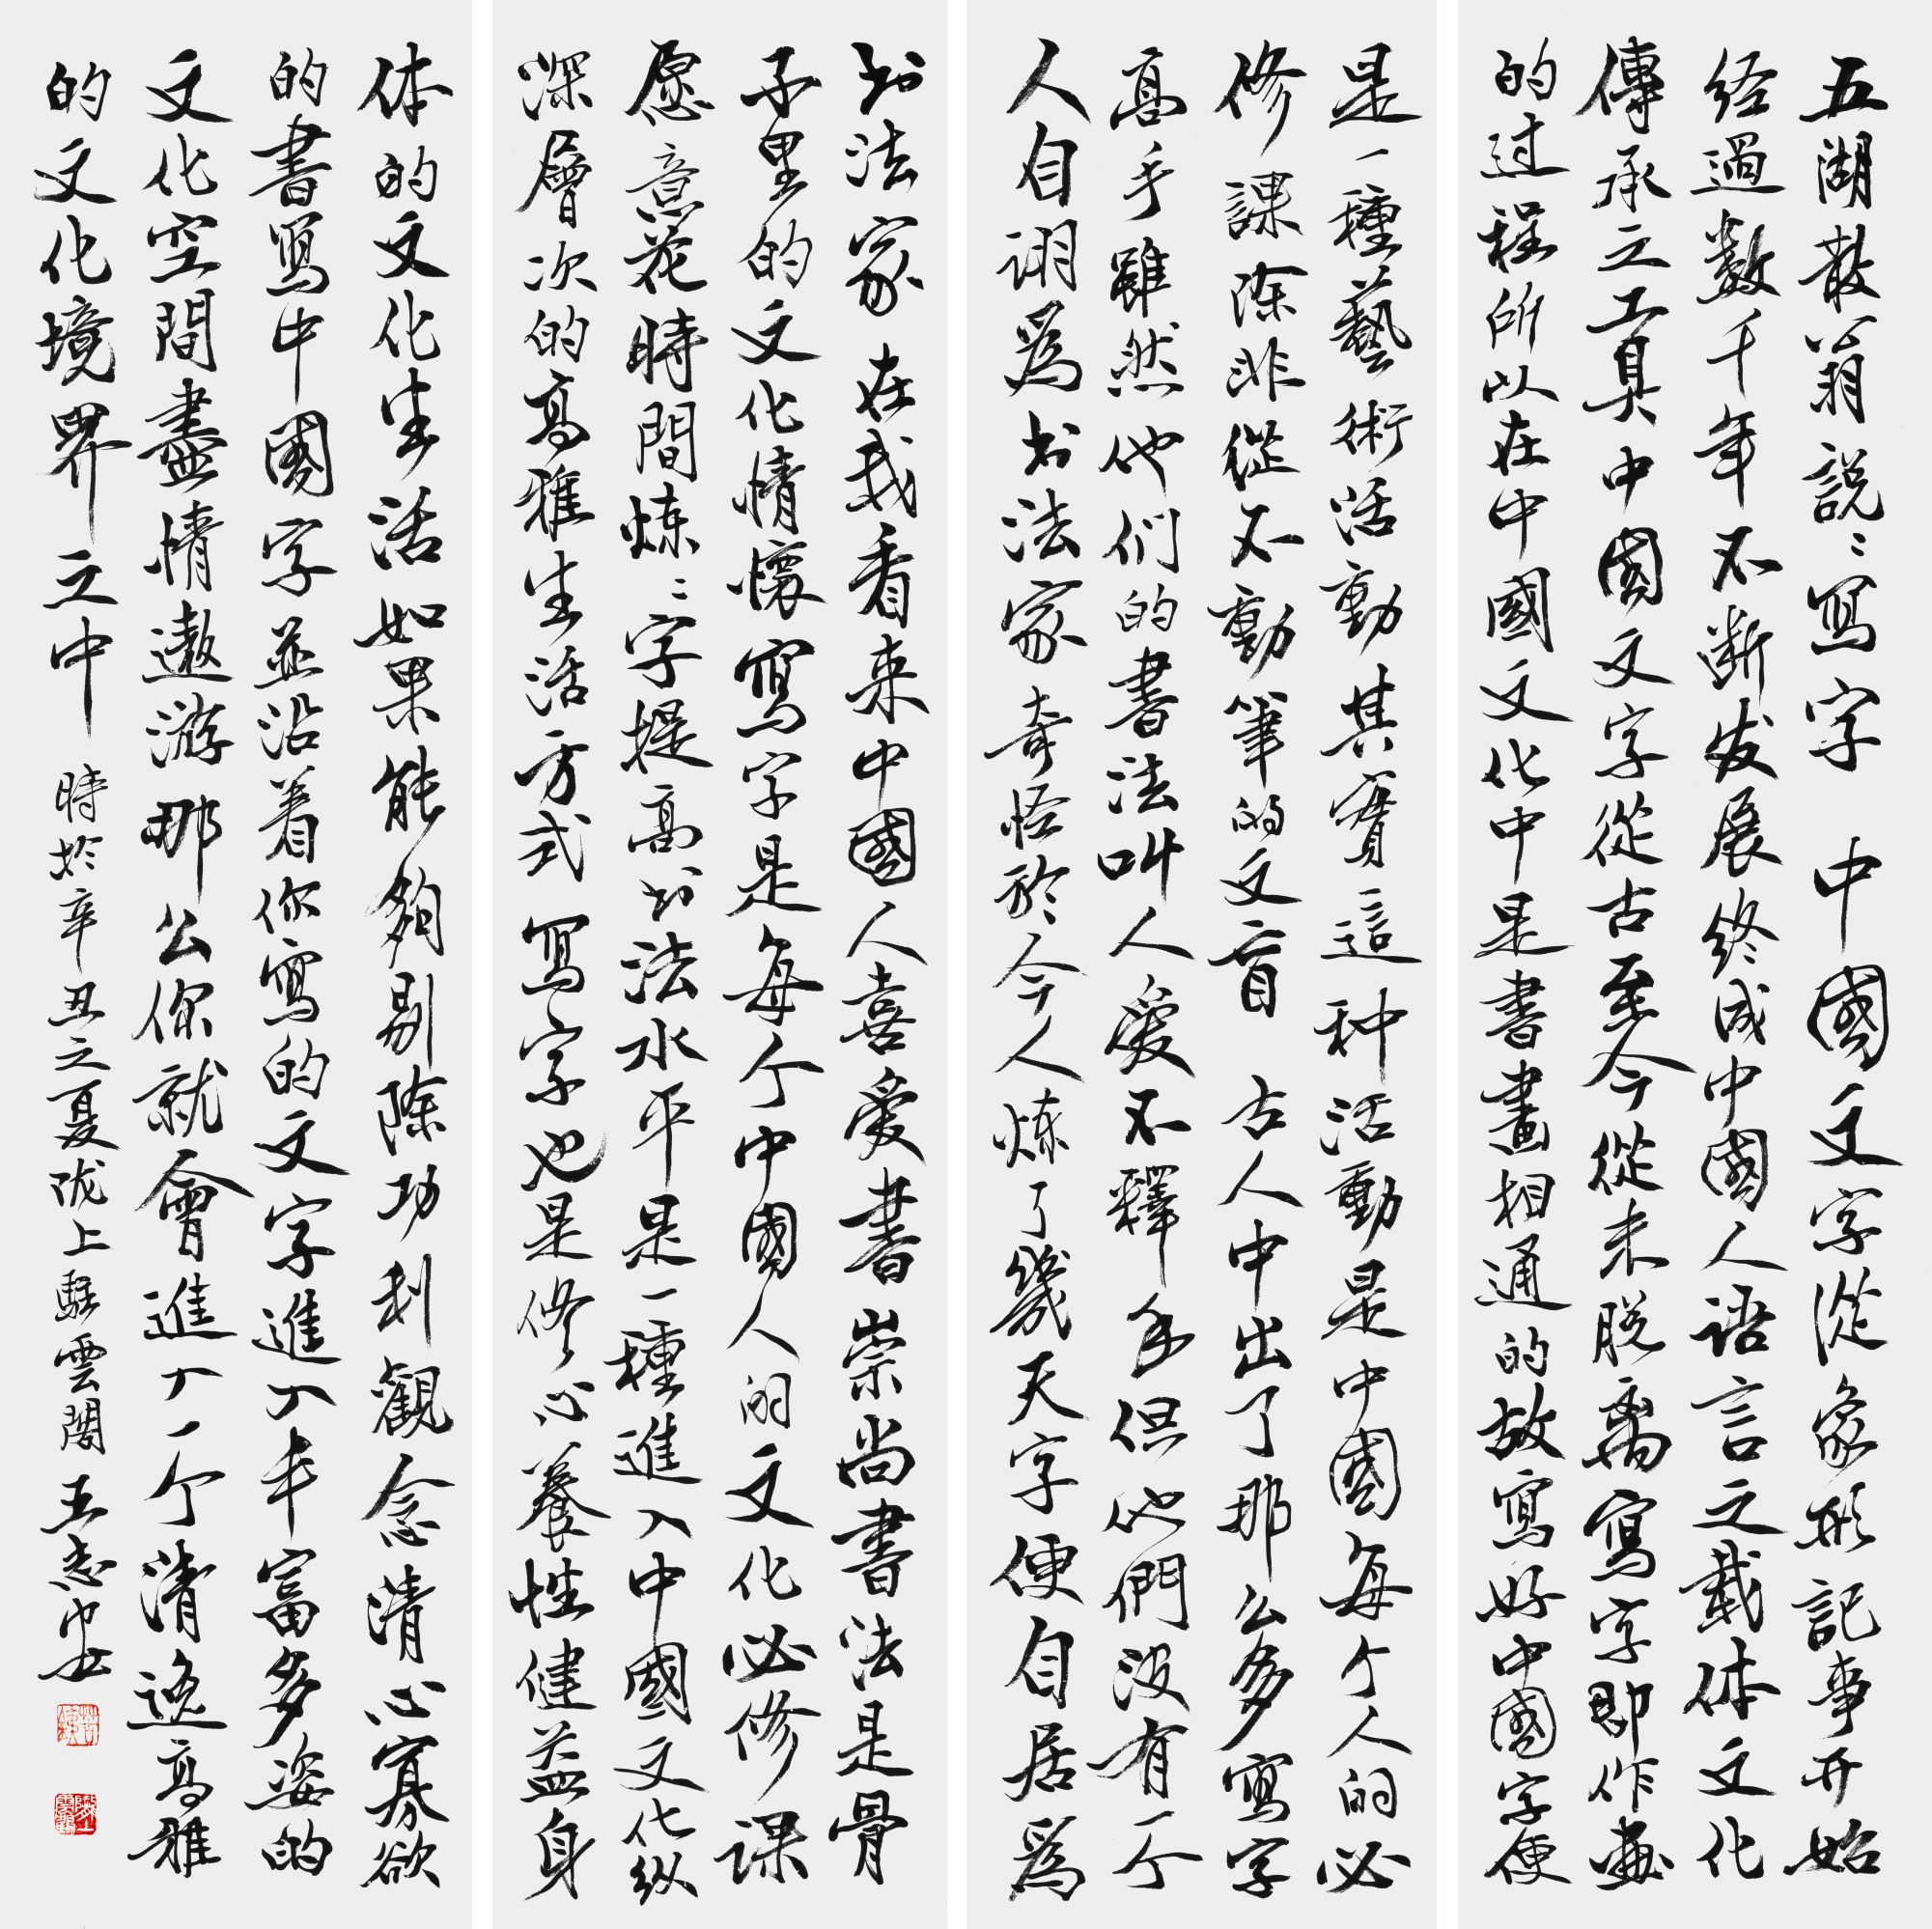 五湖散翁說〻寫字 中國文字從象形記事开始
经過数千年不断发展终成中國人语言之载体文化
傳承之工具中國文字從古至今從未脱离寫字即作画
的过程所以在中國文化中是書畫相通的故寫好中國字便
是一種藝術活動其實這种活動是中國每个人的必
修課除非從不動筆的文盲 古人中出了那么多寫字
高手雖然他们的書法叫人愛不釋手但他們没有一个
人自诩為书法家奇怪於今人炼了幾天字便自居為
书法家在我看来中國人喜爱書崇尚書法是骨
子里的文化情懷寫字是每个中國人的文化必修课
愿意花時間炼〻字提高书法水平是一種進入中國文化纵
深層次的高雅生活方式寫字也是修心養性健益身
体的文化生活如果能夠剔除功利觀念清心寡欲
的書寫中國字並沿着你寫的文字進入丰富多姿的
文化空間盡情遨游那么你就會進入一个清逸高雅
的文化境界之中 時於辛丑之夏陇上騷雲閣王志安书